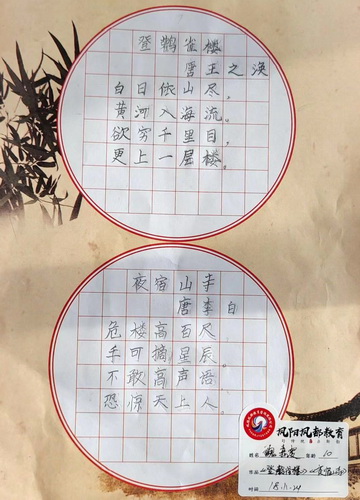 登鹳雀楼
唐王之涣
白日依山尽。
黄河入海流。
欲穷千里目，
更上一层楼。
夜宿山寺
唐李白
危楼高百尺
手可摘星辰
不敢高声语
恐惊天上人。
凤阳凤都教育
姓名 年龄 10
作品《登鹳雀楼》《夜宿山寺》
时间 18.11.24